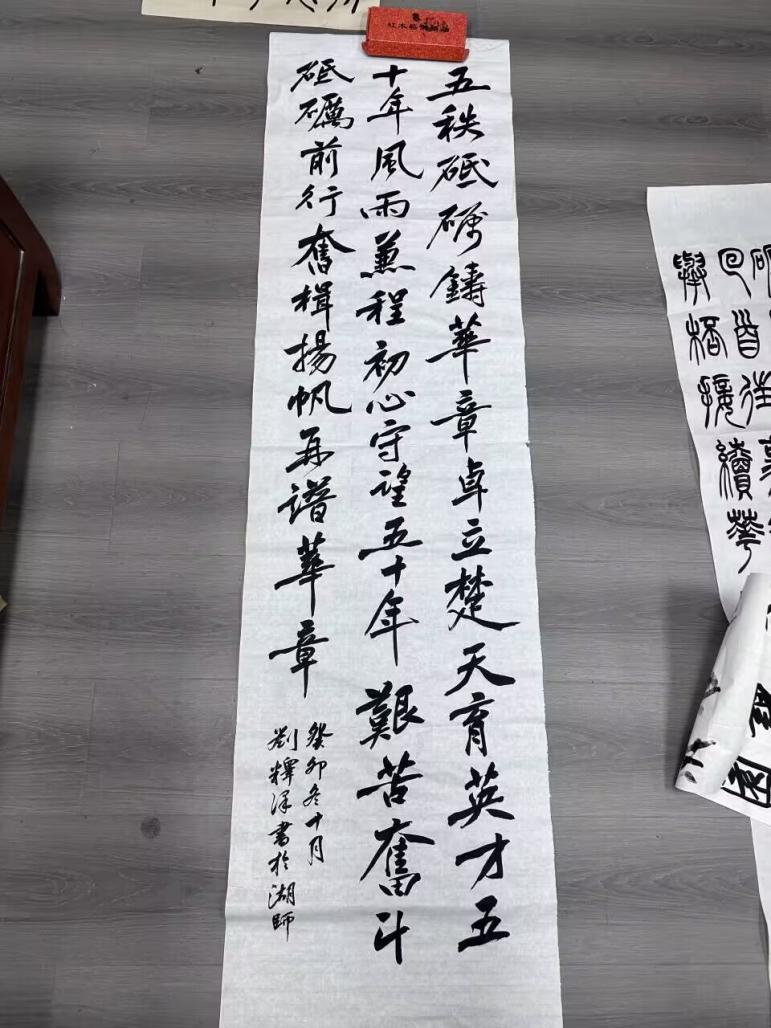 五秩砥砺鑄華章卓立楚天育英才五
十年風雨兼程初心守望五十年艱苦奮斗
砥礪前行奮楫揚帆再譜華章
癸卯冬十月
劉釋澤書於湖師
紅木
回首往
舉橋接續華